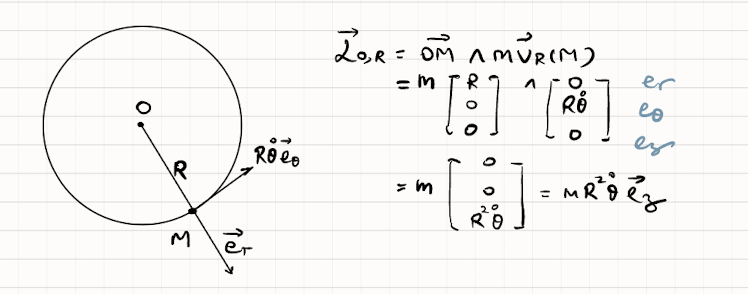 O
R
Rθ̇e⃗θ
M
e⃗r
L⃗O,R = OM⃗ ∧ mV⃗R(M)
= m [R 0 0] ∧ [0 Rθ̇ 0] er eθ ez
= m [0 0 R²θ̇] = mR²θ̇ e⃗z